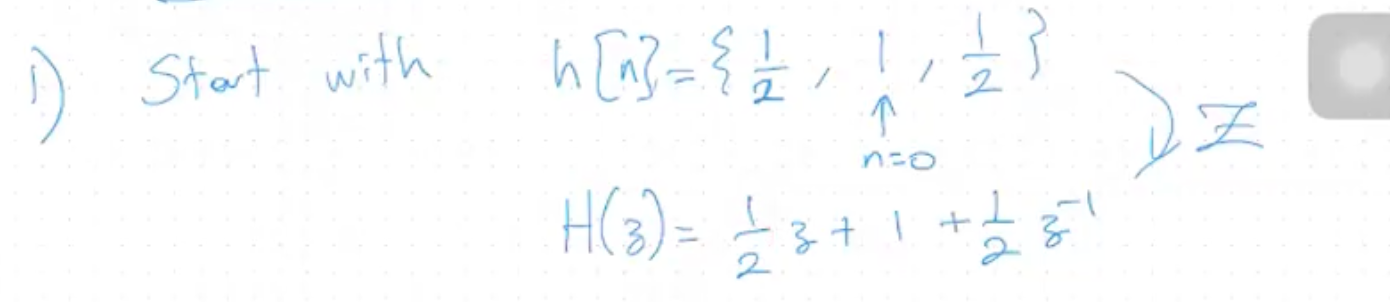 1) Start with h[n]={1/2, 1, 1/2} Z
↑
n=0
H(z)= 1/2 z + 1 + 1/2 z⁻¹